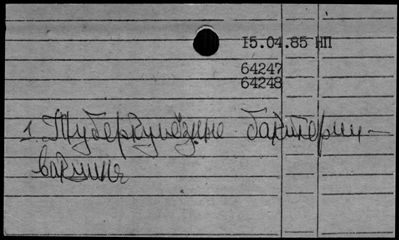 15.04.85 НП
64247
64248
1. Туберкулёзные бактерии –
вакцина